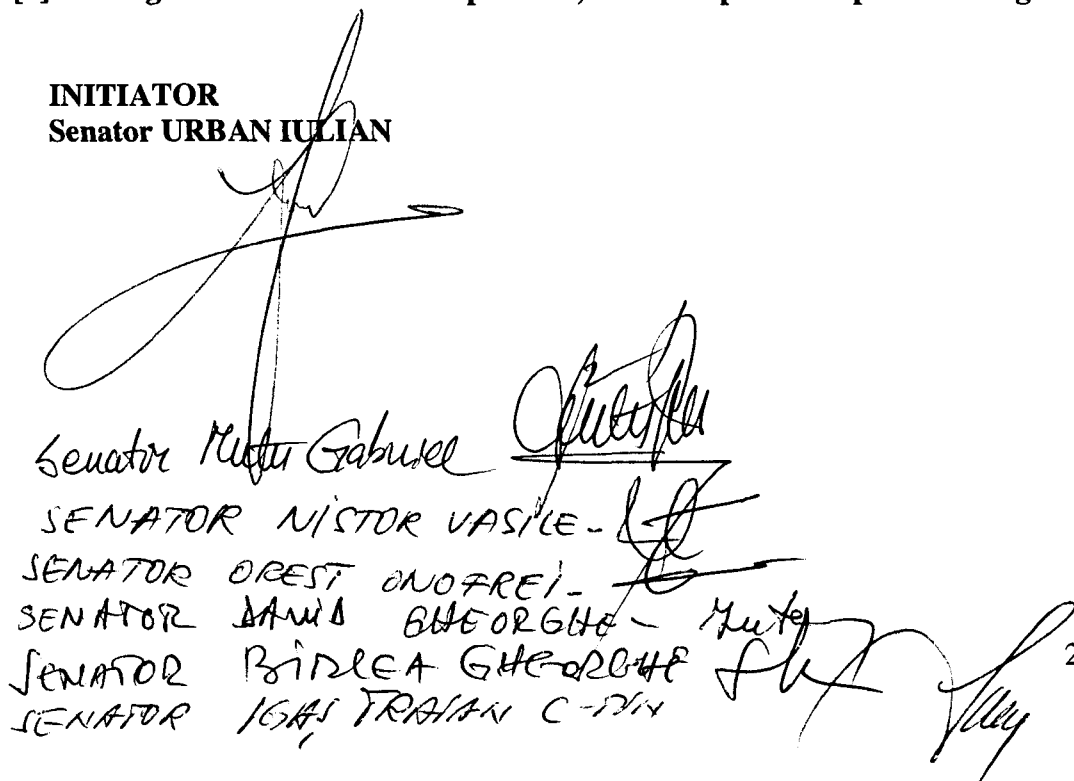 INITIATOR
Senator URBAN IULIAN
Senator Mutu Gabriel
SENATOR NISTOR VASILE-
SENATOR OREST ONOFREI-
SENATOR DAVID GHEORGHE -
SENATOR BÎRLEA GHEORGHE
SENATOR IGAȘ TRAIAN C-TIN
2